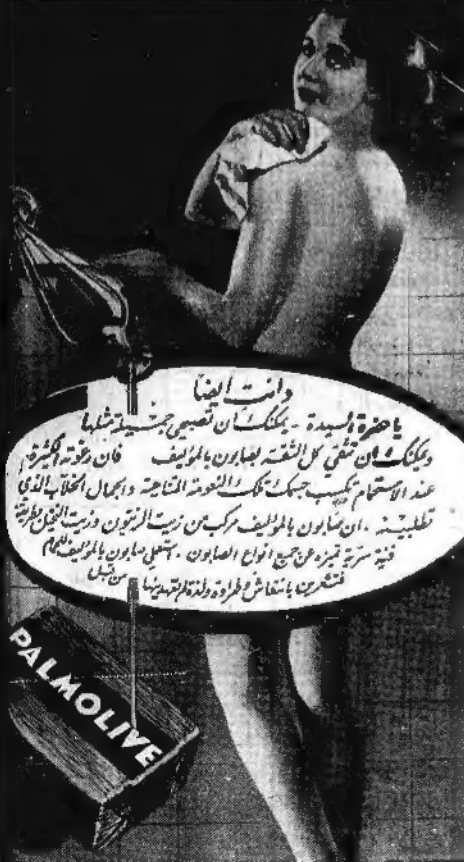 وانت ايضاً
يا حضرة السيدة - يمكنك أن تصبحي جميلة مثلها
ويمكنك أن تثقي كل الثقة بصابون بالموليف فان رغوته الكثيرة
عند الاستحمام تكسب جسمك تلك النعومة المتناهية والجمال الخلاب الذي
تطلبينه . ان صابون بالموليف مركب من زيت الزيتون وزيت النخيل بطريقة
فنية سرية تميزه عن جميع انواع الصابون . استعملي صابون بالموليف للحمام
فتشعرين بانتعاش وطراوة ولذة لم تعهديها من قبل
PALMOLIVE